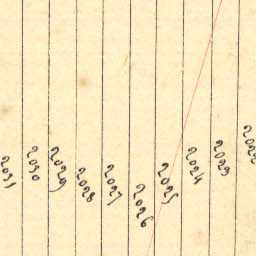 2022
2023
2024
2025
2026
2027
2028
2029
2030
2031